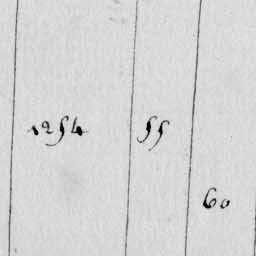 1254 55
60